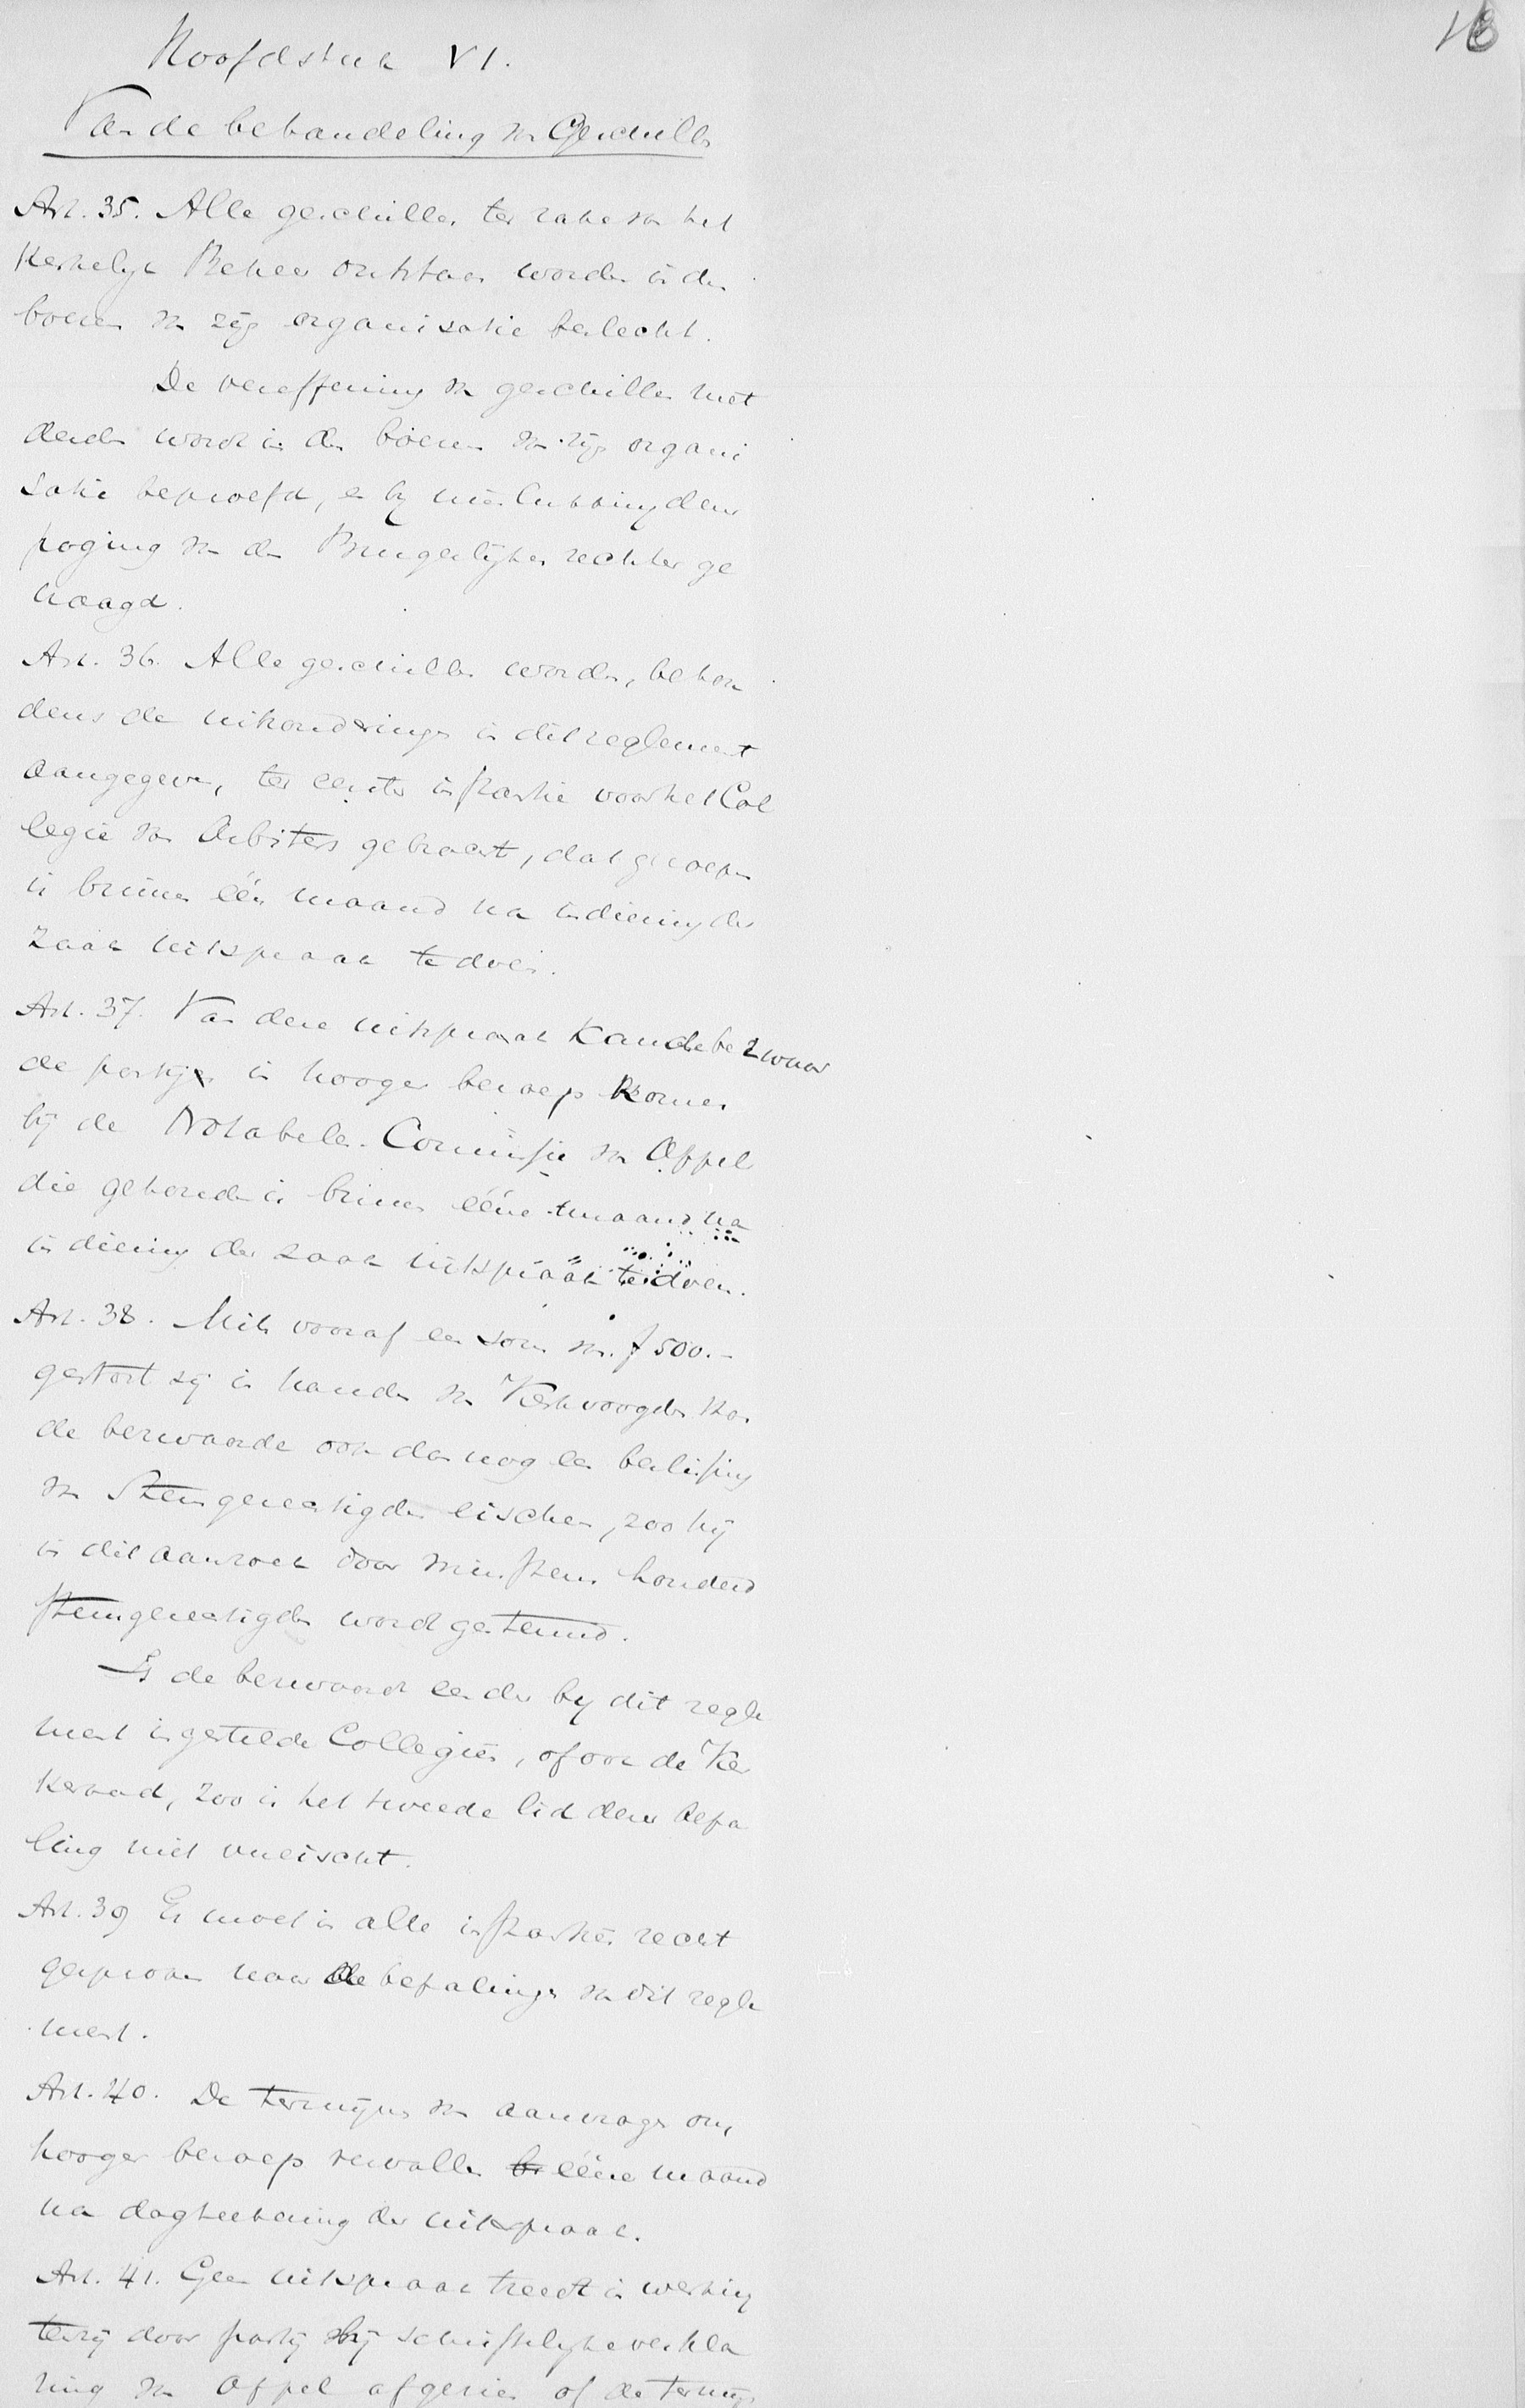 18
Hoofdstuk VI.
Van de behandeling van Geschillen
Art. 35. Alle geschillen ter zake van het
Kerkelijk Beheer ontstaan worden in den
boezem van zijn organisatie beslecht.
De vereffening van geschillen met
derden wordt in den boezem van zijn organi
satie beproefd, en bij mislukking dezer
poging van den Burgerlijken rechter ge
vraagd.
Art. 36. Alle geschillen worden, behou
dens de uitzonderingen in dit reglement
aangegeven, ter eerster instantie voor het Col
legie van Arbiters gebracht, dat geroepen
is binnen één maand na indiening der
zaak uitspraak te doen.
Art. 37. Van deze uitspraak kan de bezwaar
de partij in hooger beroep komen
bij de Notabelen-Commissie van Appel
die gehouden is binnen ééne maand na
indiening der zaak uitspraak te doen.
Art. 38. Mits vooraf een som van f 500.-
gestort zij in handen van Kerkvoogden kan
de bezwaarde ook dan nog een beslissing
van Stemgerechtigden eischen, zoo hij
in dit aanzoek door minstens honderd
stemgerechtigden wordt gesteund.
Is de bezwaarde een der bij dit regle
ment ingestelde Collegiën, of ook de Ker
keraad, zoo is het tweede lid dezer bepa
ling niet vereischt.
Art. 39 Er moet in alle instantiën recht
gesproken naar de bepalingen van dit regle
ment.
Art. 40. De termijnen van aanvragen om
hooger beroep vervallen ééne maand
na dagteekening der uitspraak.
Art. 41. Geen uitspraak treedt in werking
tenzij door partij bij schriftelijke verkla
ring van Appel afgezien of de termijn